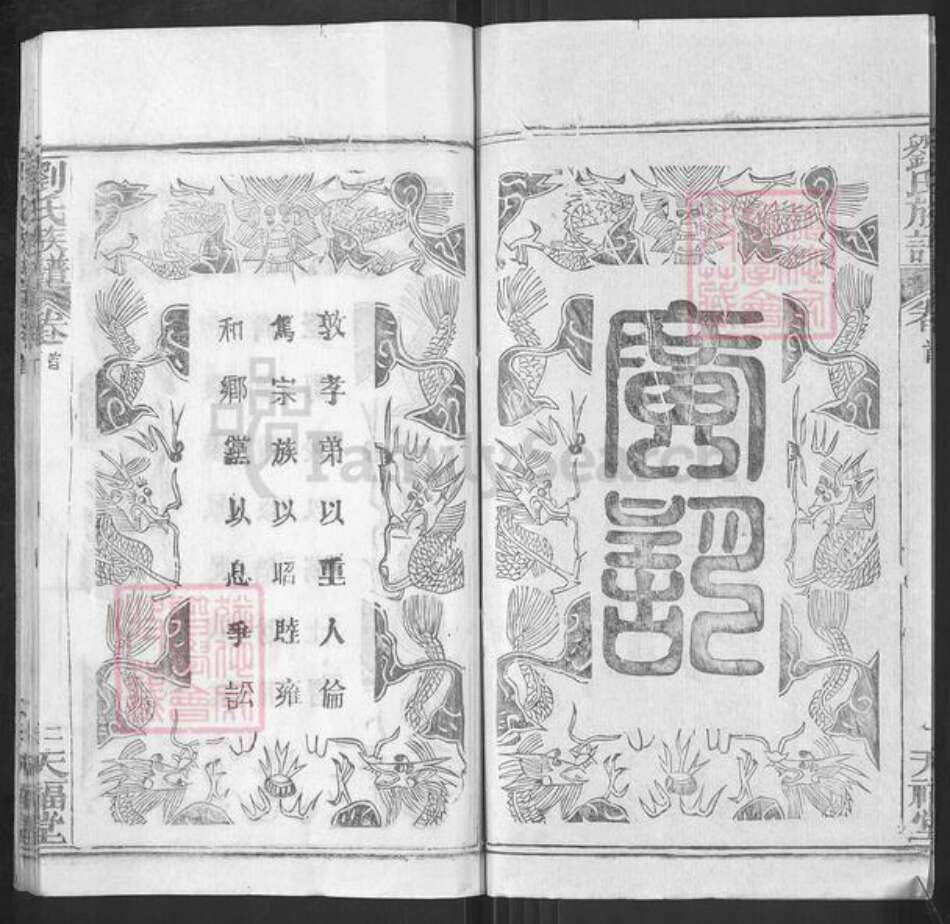 劉氏族譜 卷首 天福堂
廣訓
敦孝弟以重人倫
篤宗族以昭睦雍
和鄉黨以息爭訟
劉氏族譜 卷首 二 天福堂
FamilySearch